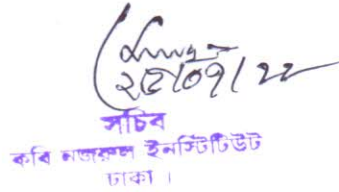 ২৫/০৭/২২
সচিব
কবি নজরুল ইনস্টিটিউট
ঢাকা ।